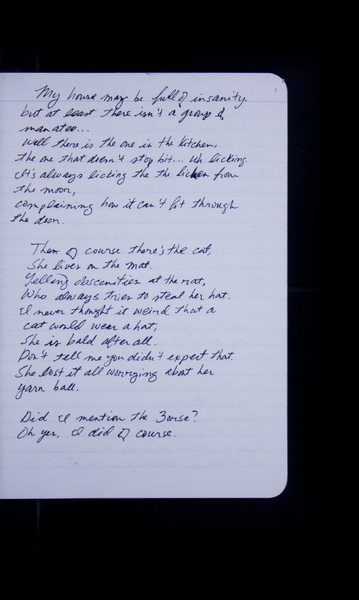 My house may be full of insanity,
but at least there isn't a group of
manatee...
Well there is the one in the kitchen,
the one that doesn't stop bit... uh licking.
It's always licking the the lichen from
the moor,
complaining how it can't fit through
the door.
Then of course there's the cat,
She lives on the mat.
Yelling obscenities at the rat,
Who always tries to steal her hat.
I never thought it weird that a
cat would wear a hat,
She is bald after all.
Don't tell me you didn't expect that.
She lost it all worrying about her
yarn ball.
Did I mention the
Oh yes, I did of course.